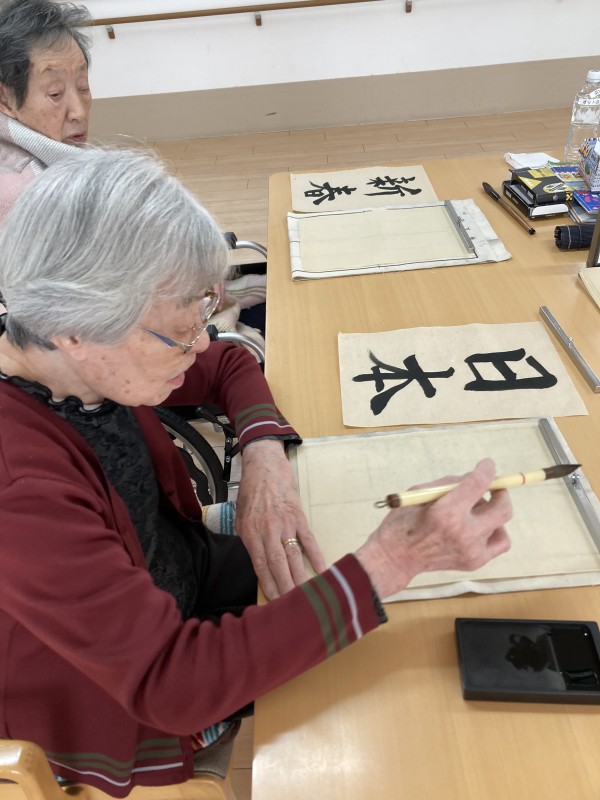 新春
日本